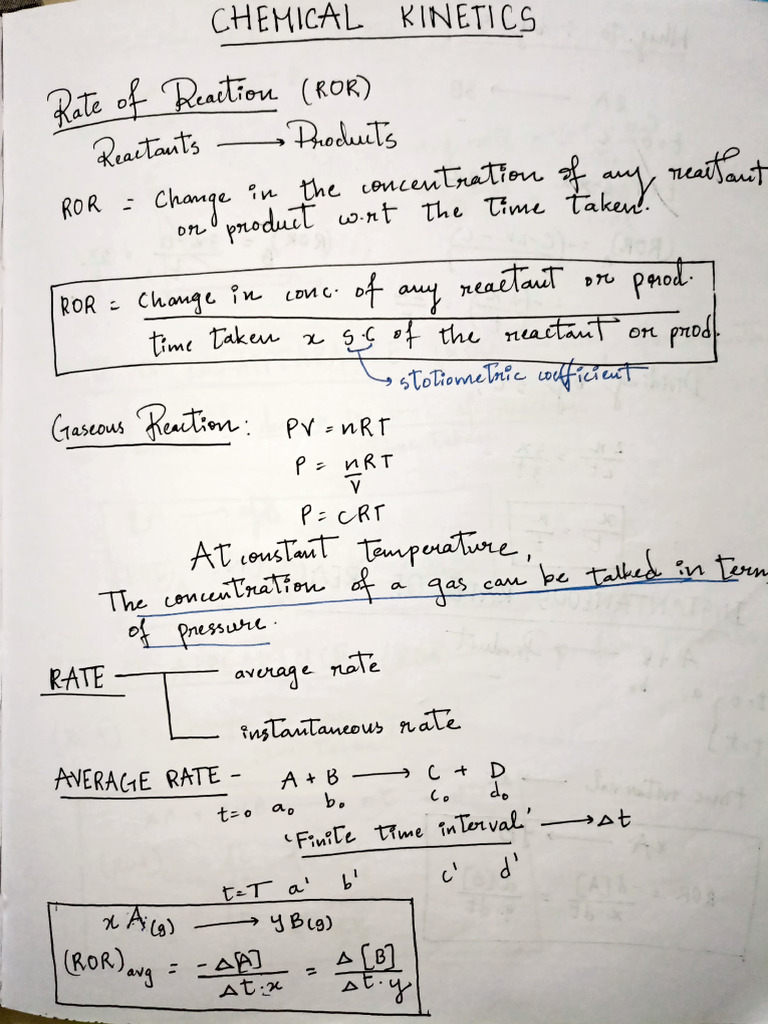 CHEMICAL KINETICS
Rate of Reaction (ROR)
Reactants ⟶ Products
ROR = Change in the concentration of any reactant
or product w.r.t the time taken.
ROR = Change in conc. of any reactant or prod.
time taken x S.C of the reactant or prod.
stotiometric coefficient
Gaseous Reaction: PV = nRT
P = nRT/V
P = CRT
At constant temperature,
The concentration of a gas can be talked in term
of pressure.
RATE average rate
instantaneous rate
AVERAGE RATE - A + B ⟶ C + D
t=0 a₀ b₀ c₀ d₀
'Finite time interval' ⟶ Δt
t=T a' b' c' d'
x A(g) ⟶ y B(g)
(ROR)avg = -Δ[A]/Δt.x = Δ[B]/Δt.y